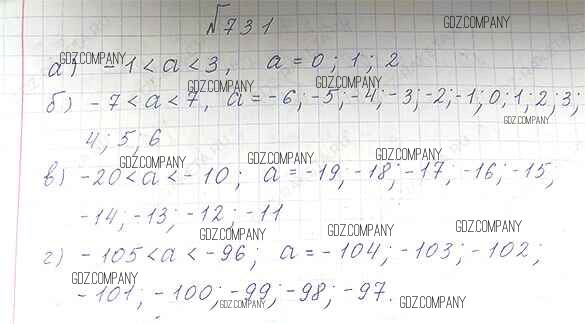 №731
GDZ.COMPANY
GDZ.COMPANY
а) -1 < a < 3, a = 0; 1; 2
GDZ.COMPANY GDZ.COMPANY
б) -7 < a < 7, a = -6; -5; -4; -3; -2; -1; 0; 1; 2; 3;
GDZ.COMPANY
4; 5; 6
GDZ.COMPANY GDZ.COMPANY GDZ.COMPANY
в) -20 < a < -10; a = -19; -18; -17; -16; -15,
-14; -13; -12; -11
GDZ.COMPANY GDZ.COMPANY GDZ.COMPANY
г) -105 < a < -96; a = -104; -103; -102;
GDZ.COMPANY
-101; -100; -99; -98; -97.
GDZ.COMPANY GDZ.COMPANY